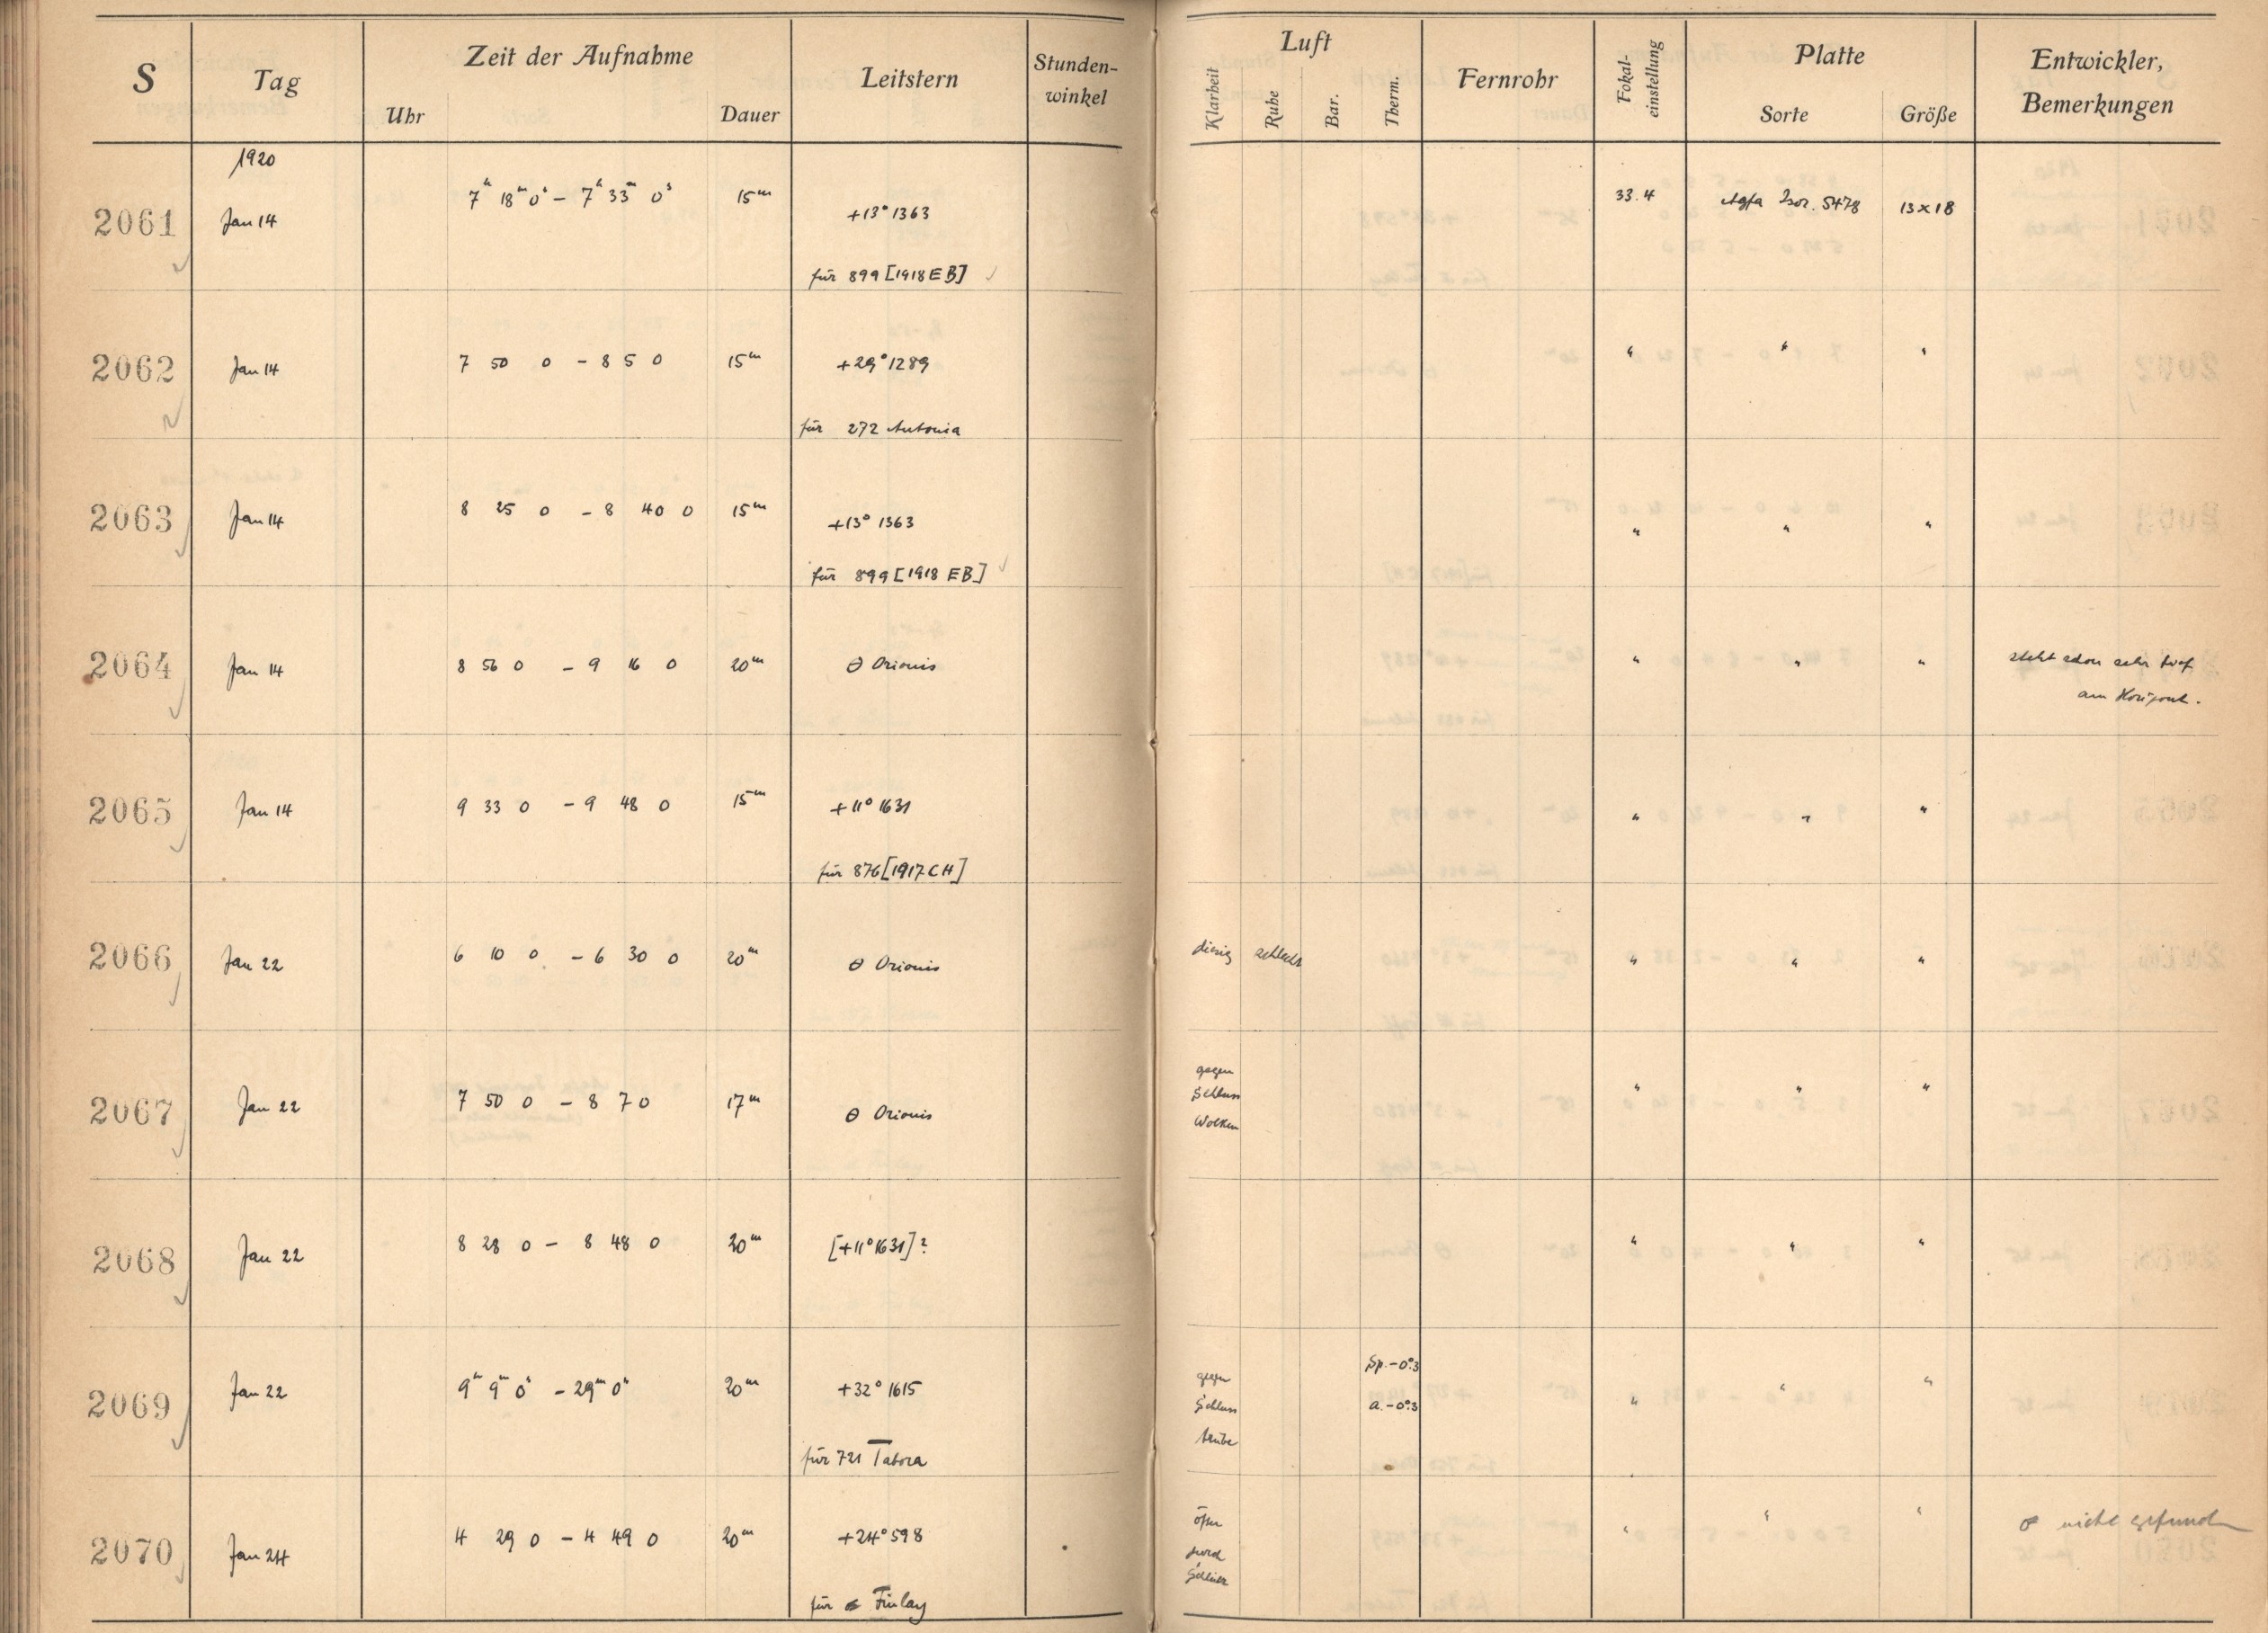 S Tag Zeit der Aufnahme Leitstern Stunden-winkel Luft Fernrohr Fokal-einstellung Platte Entwickler, Bemerkungen
Uhr Dauer Klarheit Ruhe Bar. Therm. Sorte Größe
1920
2061 Jan 14 7ʰ 18ᵐ 0ˢ – 7ʰ 33ᵐ 0ˢ 15ᵐ +13° 1363 33.4 Agfa Isor. 5478 13×18
für 899 [1918 EB]
2062 Jan 14 7 50 0 – 8 5 0 15ᵐ +29° 1289 " " "
für 272 Antonia
2063 Jan 14 8 25 0 – 8 40 0 15ᵐ +13° 1363 " " "
für 899 [1918 EB]
2064 Jan 14 8 56 0 – 9 16 0 20ᵐ θ Orionis " " " steht schon sehr tief
am Horizont.
2065 Jan 14 9 33 0 – 9 48 0 15ᵐ +11° 1631 " " "
für 876 [1917 CH]
2066 Jan 22 6 10 0 – 6 30 0 20ᵐ θ Orionis diesig schlecht " " "
2067 Jan 22 7 50 0 – 8 7 0 17ᵐ θ Orionis gegen " " "
Schluss
Wolken
2068 Jan 22 8 28 0 – 8 48 0 20ᵐ [+11° 1631]? " " "
2069 Jan 22 9ʰ 9ᵐ 0ˢ – 29ᵐ 0ˢ 20ᵐ +32° 1615 gegen Sp. –0°.3 " " "
Schluss a. –0°.3
trübe
für 721 Tabora
2070 Jan 24 4 29 0 – 4 49 0 20ᵐ +24° 598 öfter " " " nicht gefunden
durch
Schleier
für Finlay